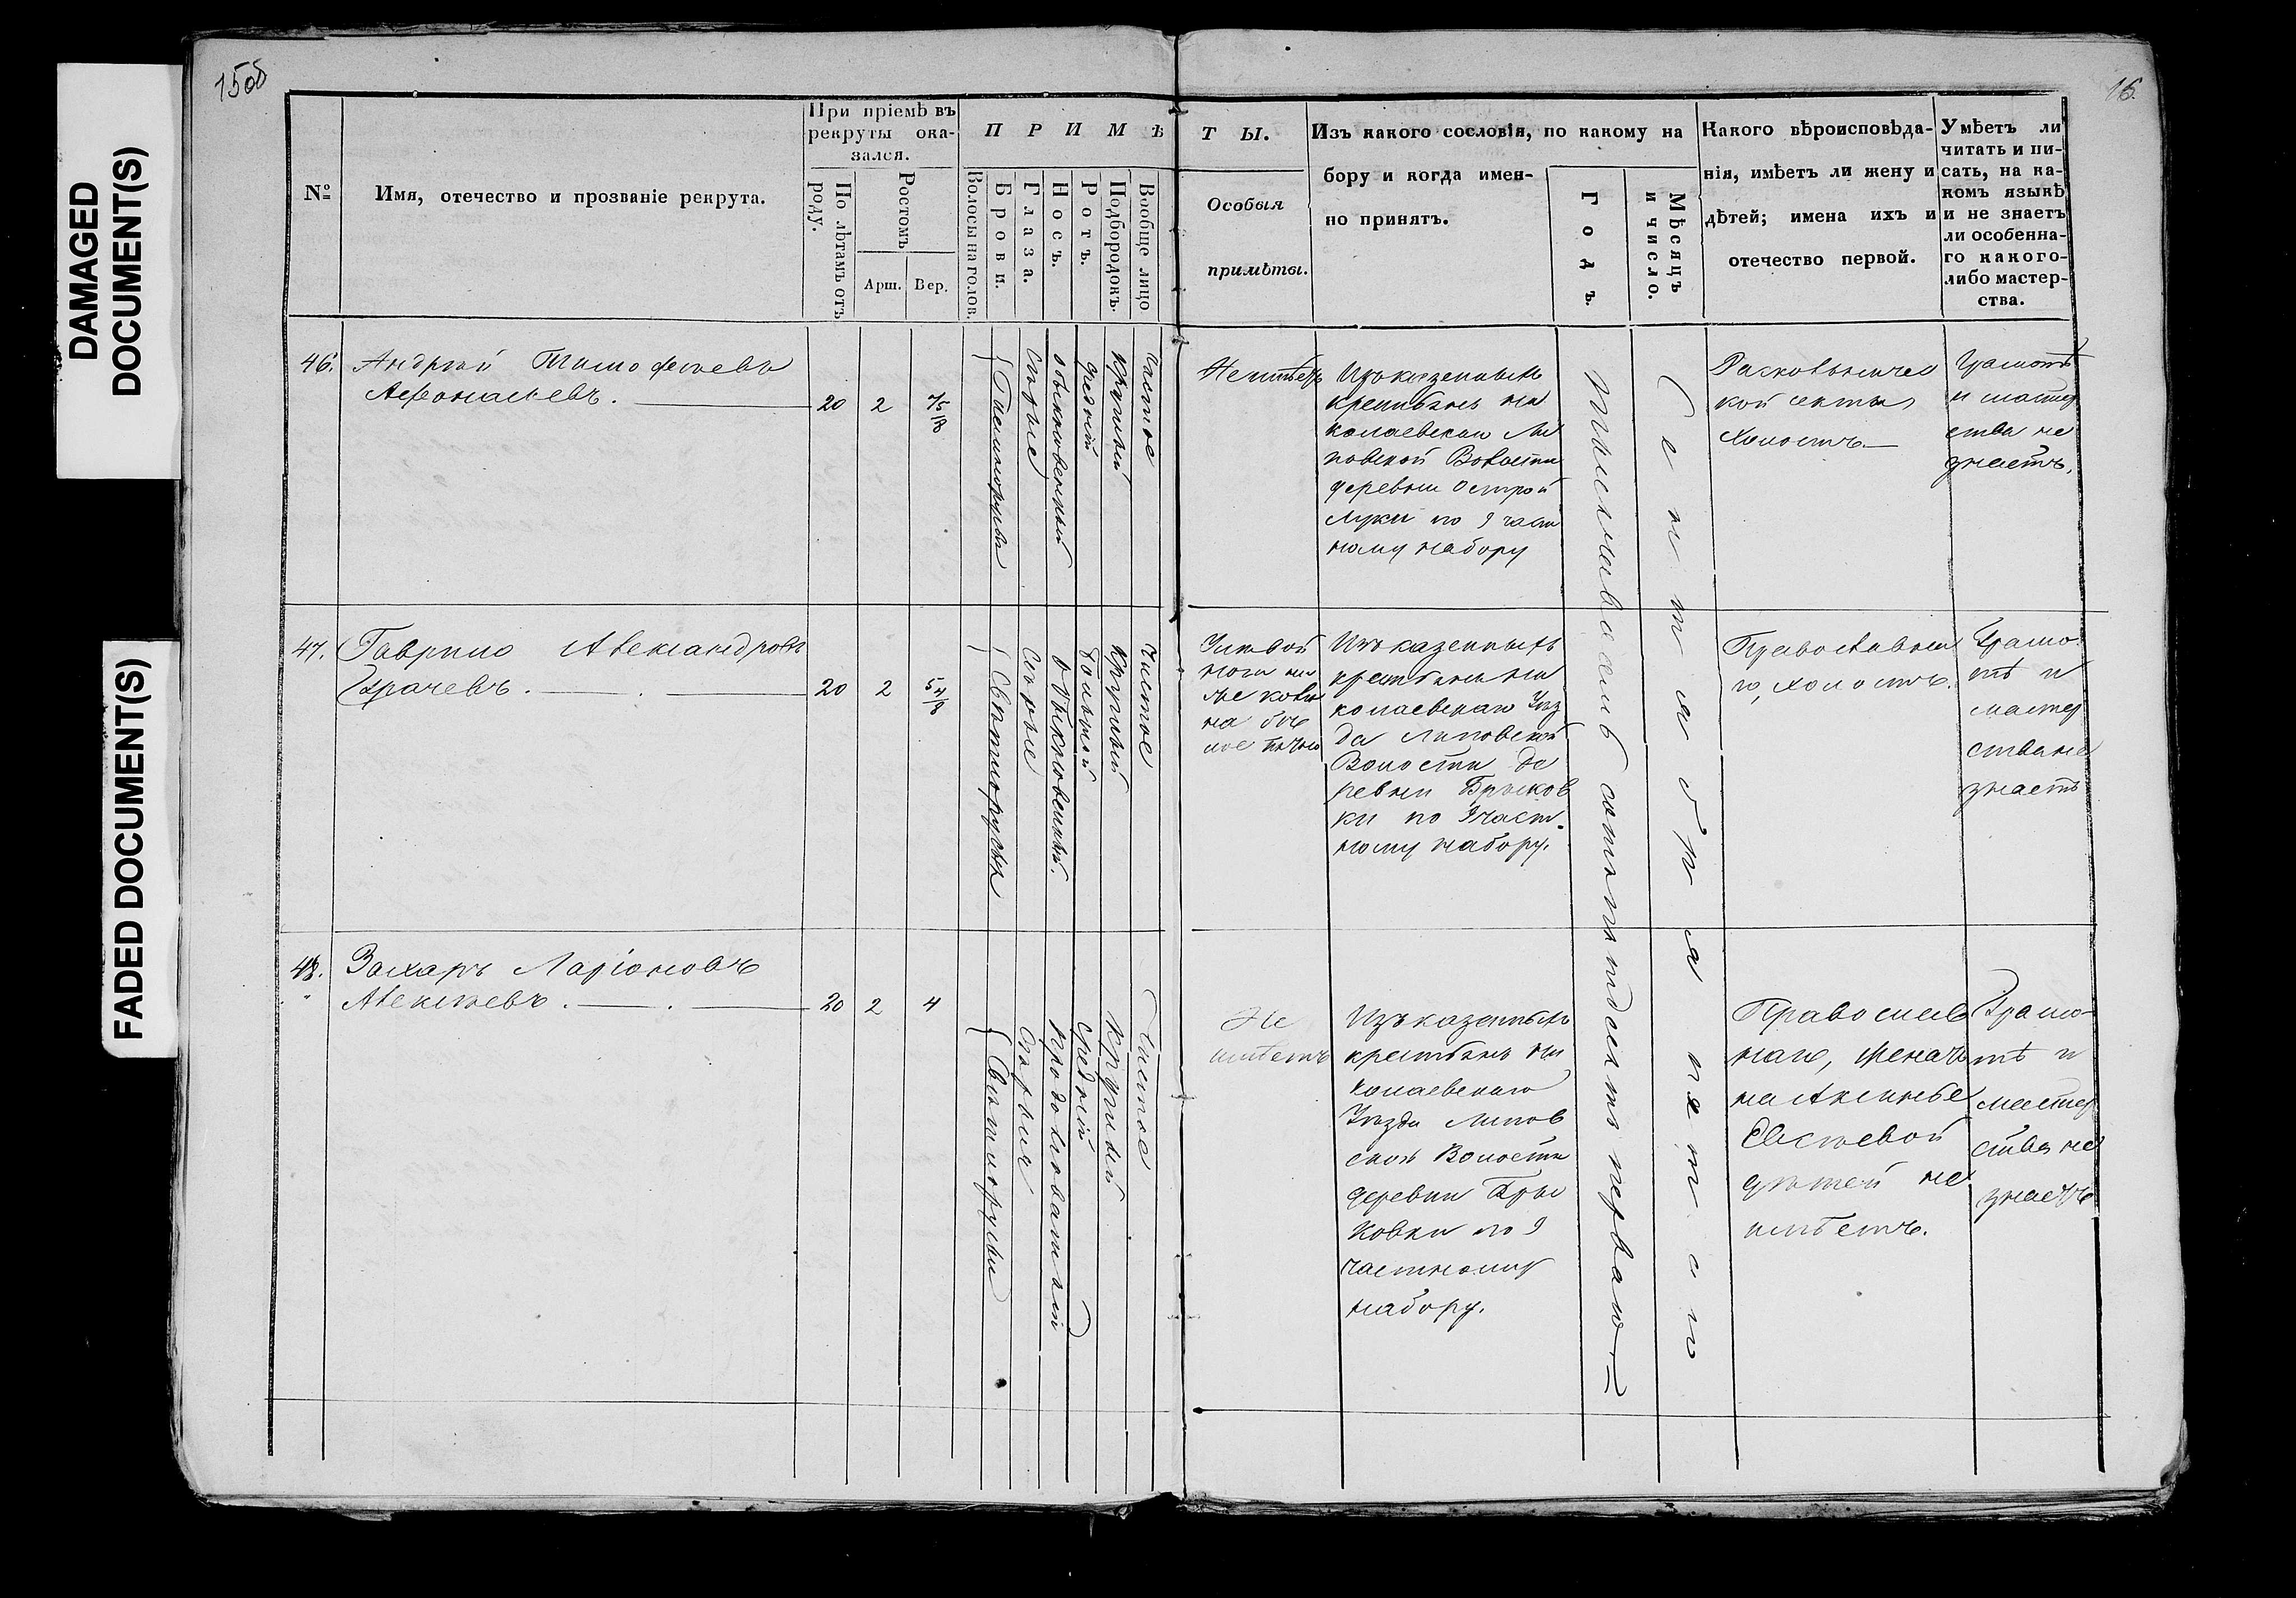 DAMAGED
DOCUMENT(S)
FADED DOCUMENT(S)
15об
16.
№
Имя, отечество и прозваніе рекрута.
При пріемѣ въ
рекруты ока-
зался.
По лѣтамъ отъ
роду.
Ростомъ
Арш.
Вер.
П Р И М Ѣ
Волосы на голов.
Брови.
Глаза.
Носъ.
Ротъ.
Подбородокъ.
Вообще лицо
Т Ы.
Особыя
примѣты.
Изъ какого сословія, по какому на
бору и когда имен-
но принятъ.
Годъ.
Мѣсяцъ
и число.
Какого вѣроисповѣда-
нія, имѣетъ ли жену и
дѣтей; имена ихъ и
отечество первой.
Умѣетъ ли
читать и пи-
сать, на ка-
комъ языкѣ
и не знаетъ
ли особенна-
го какого-
либо мастер-
ства.
46. Андрей Тимофеевъ
Афонасьевъ.
20 2
Сѣрые
обыкновенный
Круглый
чистое
Неимѣетъ
Изъ казенныхъ
крестьянъ Ни
колаевскаго Ли
повской Волости
деревни Острой
Луки по 9 част
ному набору
Раскольничес
кой секты
холостъ.
Грамотѣ
и мастер
ства не
знаетъ.
47. Гаврило Александровъ
20 2 5 4/8
Свѣтлорусыя
Сѣрые
обыкновенный.
большой
Круглый
Чистое
Изъ казенныхъ
крестьянъ Ни
колаевскаго Уѣз
да Липовской
Волости де
ревни Брыков
ки по 9 част-
ному набору.
Православна
го, холостъ.
Грамо-
тѣ и
мастер
ства не
знаетъ
48. Захаръ Ларіоновъ
Алексѣевъ.
20 2 4
Свѣтлорусыя
продолговатый
средній
Круглый
Чистое
Не
имѣетъ
Изъ казенныхъ
крестьянъ Ни
колаевскаго
Уѣзда Липов
ской Волости
деревни Бры
ковки по 9
частному
набору.
Православ
наго, женатъ
на Аксиньѣ
дѣтей не
имѣетъ.
Грамо-
тѣ и
мастер
ства не
знаетъ
Тысяча восемь сотъ пятьдесятъ перваго
Сентября пятаго